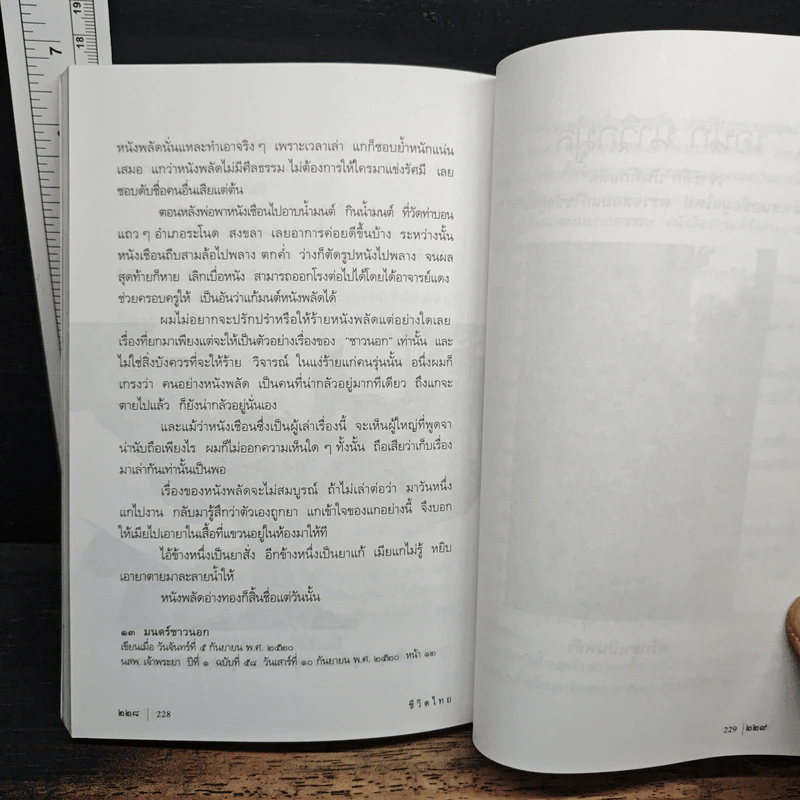 หนังพลัดนั่นแหละทำเอาจริงๆ เพราะเวลาเล่า แกก็ชอบย้ำหนักแน่น
เสมอ แกว่าหนังพลัดไม่มีศีลธรรม ไม่ต้องการให้ใครมาแข่งรัศมี เลย
ชอบดับชื่อคนอื่นเสียแต่ต้น
ตอนหลังพ่อพาหนังเชือนไปอาบน้ำมนต์ กินน้ำมนต์ ที่วัดท่าบอน
แถวๆ อำเภอระโนด สงขลา เลยอาการค่อยดีขึ้นบ้าง ระหว่างนั้น
หนังเชือนถีบสามล้อไปพลาง ตกค่ำ ว่างก็ตัดรูปหนังไปพลาง จนผล
สุดท้ายก็หาย เลิกเบื่อหนัง สามารถออกโรงต่อไปได้โดยได้อาจารย์แดง
ช่วยครอบครูให้ เป็นอันว่าแก้มนต์หนังพลัดได้
ผมไม่อยากจะปรักปรำหรือให้ร้ายหนังพลัดแต่อย่างใดเลย
เรื่องที่ยกมาเพียงแต่จะให้เป็นตัวอย่างเรื่องของ “ชาวนอก” เท่านั้น และ
ไม่ใช่สิ่งบังควรที่จะให้ร้าย วิจารณ์ ในแง่ร้ายแก่คนรุ่นนั้น อนึ่งผมก็
เกรงว่า คนอย่างหนังพลัด เป็นคนที่น่ากลัวอยู่มากทีเดียว ถึงแกจะ
ตายไปแล้ว ก็ยังน่ากลัวอยู่นั่นเอง
และแม้ว่าหนังเชือนซึ่งเป็นผู้เล่าเรื่องนี้ จะเห็นผู้ใหญ่ที่พูดจา
น่านับถือเพียงไร ผมก็ไม่ออกความเห็นใดๆ ทั้งนั้น ถือเสียว่าเก็บเรื่อง
มาเล่ากันเท่านั้นเป็นพอ
เรื่องของหนังพลัดจะไม่สมบูรณ์ ถ้าไม่เล่าต่อว่า มาวันหนึ่ง
แกไปงาน กลับมารู้สึกว่าตัวเองถูกยา แกเข้าใจของแกอย่างนี้ จึงบอก
ให้เมียไปเอายาในเสื้อที่แขวนอยู่ในห้องมาให้ที
ไอ้ข้างหนึ่งเป็นยาสั่ง อีกข้างหนึ่งเป็นยาแก้ เมียแกไม่รู้ หยิบ
เอายาตายมาละลายน้ำให้
หนังพลัดอ่างทองก็สิ้นชื่อแต่วันนั้น
๑๓ มนตร์ชาวนอก
เขียนเมื่อ วันจันทร์ที่ ๕ กันยายน พ.ศ. ๒๕๒๐
นสพ. เจ้าพระยา ปีที่ ๑ ฉบับที่ ๕๘ วันเสาร์ที่ ๑๐ กันยายน พ.ศ. ๒๕๒๐ หน้า ๑๒
๒๒๘ | 228
ชีวิตไทย
229 | ๒๒๙
7
19
18